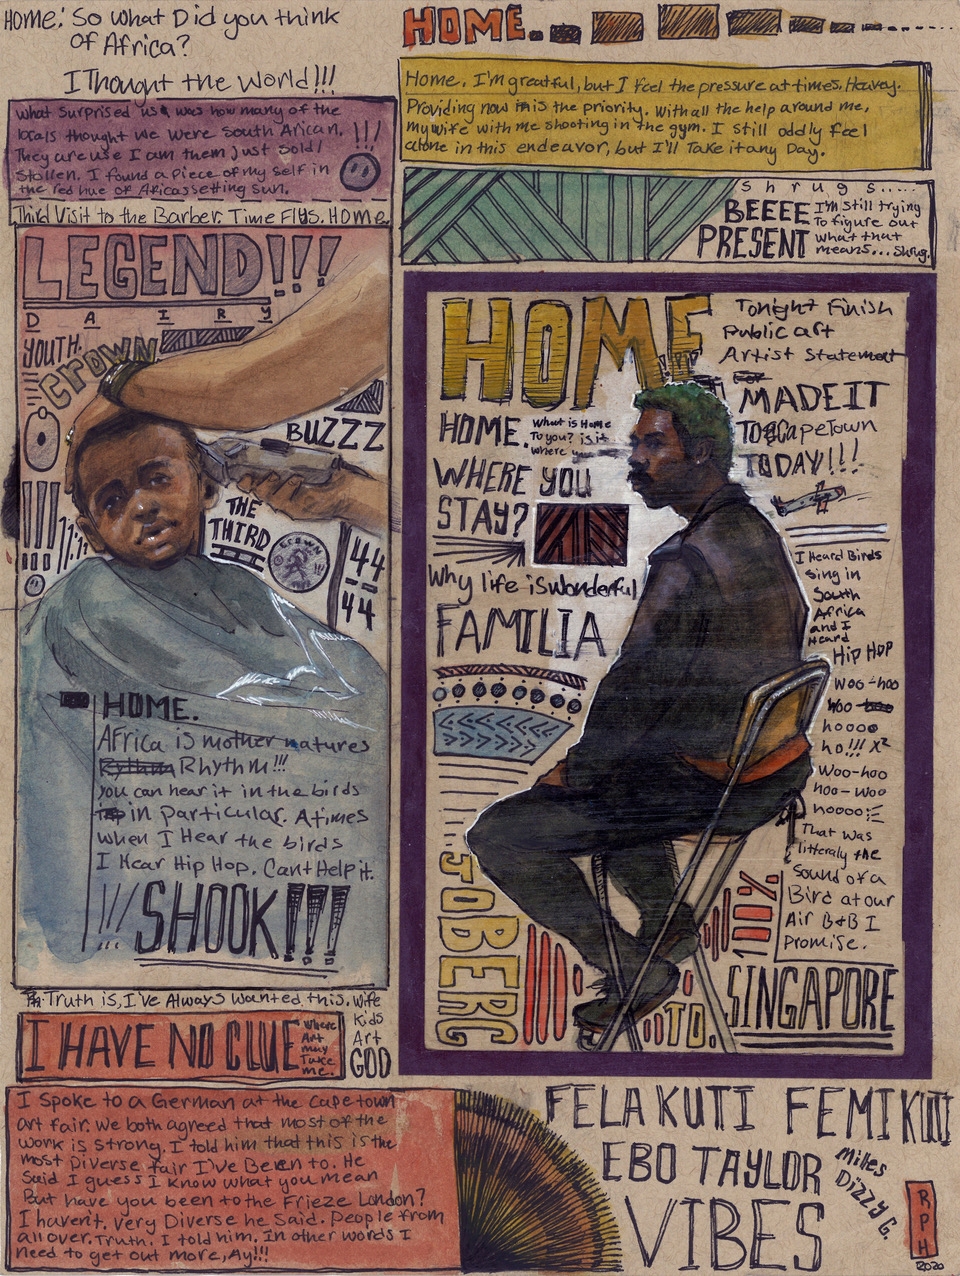 HOME: So what Did you think
of Africa?
I Thought the World!!!
What surprised us was how many of the
locals thought we were South Arican.
They are use I am them just Sold/
Stollen. I found a Piece of my self in
the red hue of Africas setting Sun.
!!!
Third Visit to the Barber. Time Flys. Home
LEGEND!!!
D A I R Y
YOUTH.
CROWN
BUZZZ
THE
THIRD
CROWN
44
44
HOME.
Africa is mother natures
Rhythm!!!
you can hear it in the birds
in particular. Atimes
when I Hear the birds
I Hear Hip Hop. Cant Help it.
!!! SHOOK!!!
Truth is, I've Always wanted this. Wife
Kids
Art
GOD
I HAVE NO CLUE
where
Art
may
Take
me.
I Spoke to a German at the Cape town
art fair. We both agreed that most of the
work is strong. I told him that this is the
most Diverse fair I've Been to. He
Said I guess I know what you mean
But have you been to the Frieze London?
I havent. Very Diverse he Said. People from
all over. Truth. I told him. In other words I
need to get out more, Ay!!!
HOME.
Home. I'm greatful, but I feel the pressure at times. Heavey.
Providing now is the priority. With all the help around me,
my wife with me shooting in the gym. I still oddly feel
alone in this endeavor, but I'll Take it any Day.
shrugs.....
BEEEE
PRESENT
I'm Still trying
To figure out
what that
means... Shrug.
HOME
Tonight Finish
Public art
Artist Statement
MADE IT
TO CapeTown
TODAY!!!
HOME.
What is Home
To you? is it
where you
WHERE YOU
STAY?
Why life is Wonderful
FAMILIA
I Heard Birds
Sing in
South
Africa
and I
Heard
HIP HOP
Woo-hoo
Woo
hoooo
ho!!! X²
Woo-hoo
hoo-woo
hoooo
That was
litteraly the
Sound of a
Bird at our
Air B&B I
Promise.
JOBERG
TO.
SINGAPORE
FELA KUTI FEMI KUTI
EBO TAYLOR
Miles
Dizzy G.
VIBES
RPH
2020